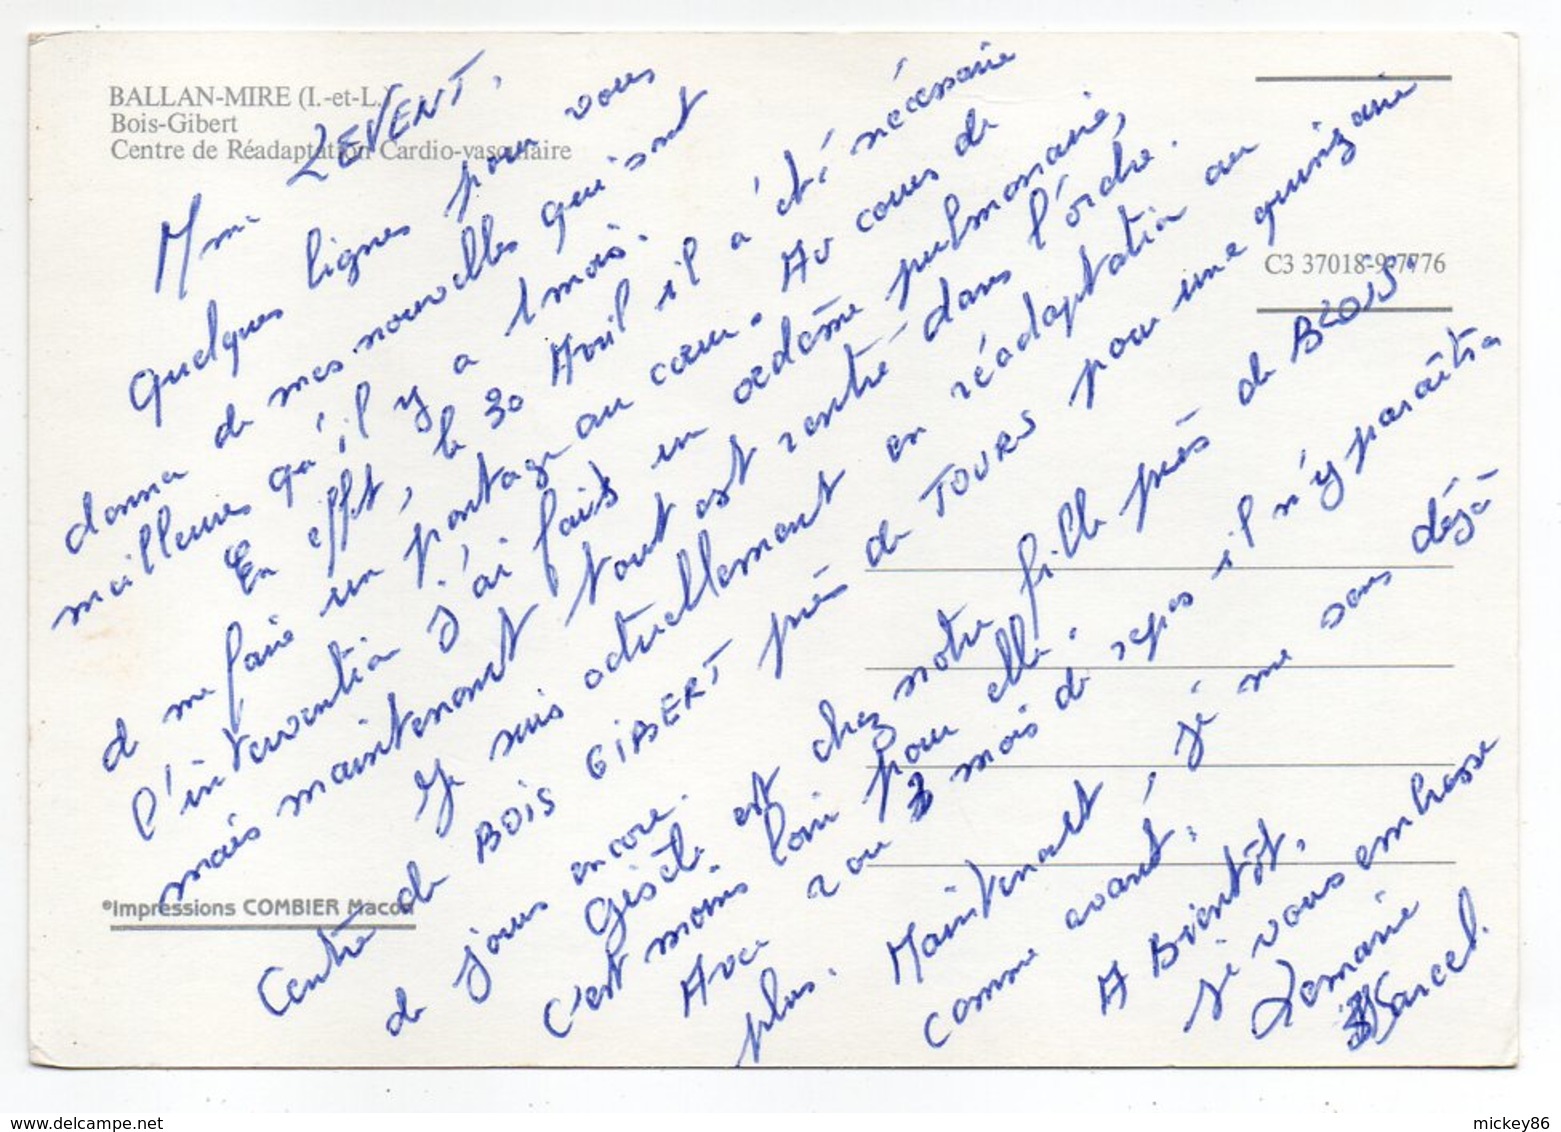 BALLAN-MIRE (I.-et-L.)
Bois-Gibert
Centre de Réadaptation Cardio-vasculaire
C3 37018-9-7776
Mme LEVENT,
quelques lignes pour vous
donner de mes nouvelles qui sont
meilleures qu'il y a 1 mois.
En effet, le 30 Avril il a été nécessaire
de me faire un pontage au cœur. Au cours de
l'intervention j'ai fait un oedème pulmonaire,
mais maintenant tout est rentré dans l'ordre.
Je suis actuellement en réadaptation au
Centre de BOIS GIBERT près de TOURS pour une quinzaine
de jours encore.
Gisèle est chez notre fille près de BLOIS.
C'est moins loin pour elle.
Avec 2 ou 3 mois de repos il n'y paraîtra
plus. Maintenant, je me sens déjà
comme avant.
A Bientôt,
je vous embrasse
Lemarie
Marcel.
®Impressions COMBIER Macon
www.delcampe.net
mickey86